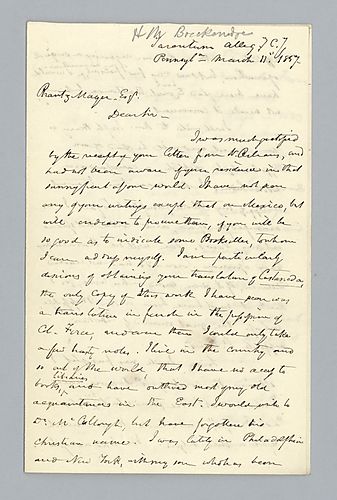 H M Brackenridge
Tarentum Alleg.y C.y
Pennsyl.a March 11th 1857
Brantz Mayer Esq.
Dear Sir —
I was much gratified
by the receipt of your letter from N. Orleans, and
had not been aware of your residence in that
sunny part of our world. I have not seen
any of your writings except that on Mexico, but
will endeavor to procure them, if you will be
so good as to indicate some Bookseller to whom
I can address myself. I am particularly
desirous of obtaining your translation of Castaneda
the only copy of this work I have seen was
a translation in french in the possession of
Col. Force, and even then I could only take
a few hasty notes. I live in the country, and
so out of the world, that I have no access to
libraries
books, and have outlived most of my old
acquaintances in the East. I would write to
Dr McCullogh, but have forgotten his
christian name. I was lately in Philadelphia
and New York, with my son who has been